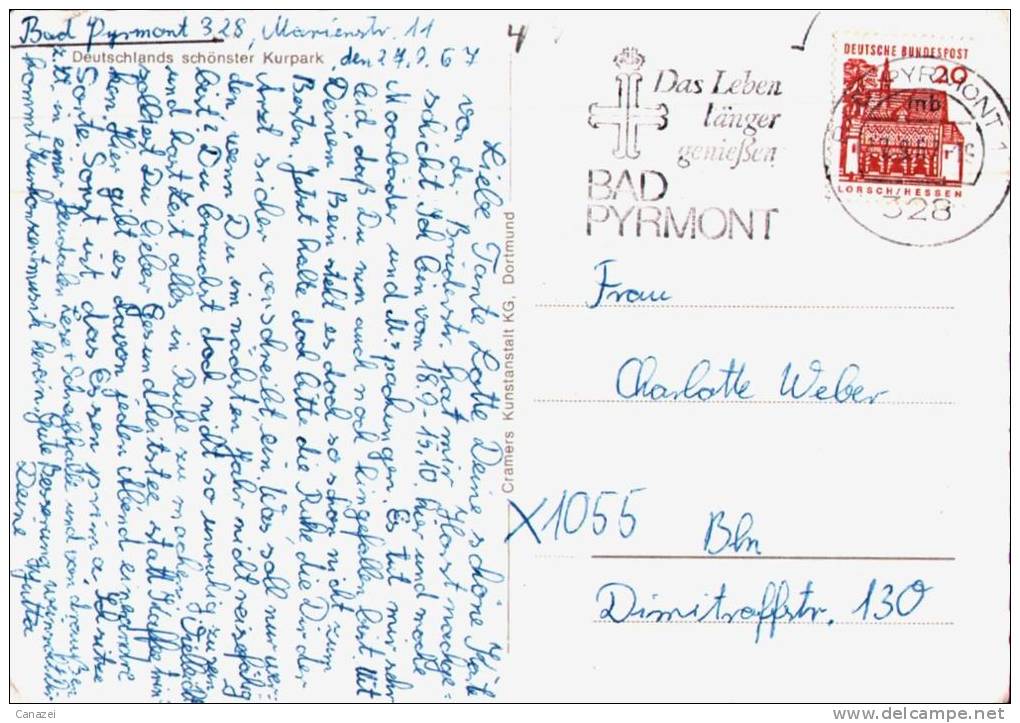 Bad Pyrmont 328, Marienstr. 11
Deutschlands schönster Kurpark
, den 27.9.67
Liebe Tante Lotte Deine schöne Karte
von der Brüderstr. hat mir Horst nachge-
schickt. Ich bin vom 18.9.-15.10. hier und mache
Moorbäder und M.-packungen. Es tut mir sehr
leid, daß Du nun auch noch hingefallen bist. Mit
Deinem Bein steht es doch so schon nicht zum
Besten. Jetzt halte doch bitte die Ruhe, die Dir der
Arzt sicher verschreibt, ein. Was soll nur wer-
den, wenn Du im nächsten Jahr nicht reisefähig
bist? Du brauchst doch nicht so unruhig zu sein
und hast Zeit alles in Ruhe zu machen. Vielleicht
solltest Du lieber Gesundheitstee statt Kaffee trin-
ken. Hier gibt es davon jeden Abend eine
Sorte. Sonst ist das Essen prima. Ich sitze
z.Zt. in einer feudalen Lese + Schreibhalle und von draußen
kommt Kurkonzertmusik herein. Gute Besserung wünscht Dir
Deine Jutta
Cramers Kunstanstalt KG, Dortmund
4
Das Leben
länger
genießen
BAD
PYRMONT
DEUTSCHE BUNDESPOST
20
LORSCH/HESSEN
PYRMONT 1
mb
328
Frau
Charlotte Weber
X1055
Bln
Dimitroffstr. 130
Canazei
http://www.delcampe.net